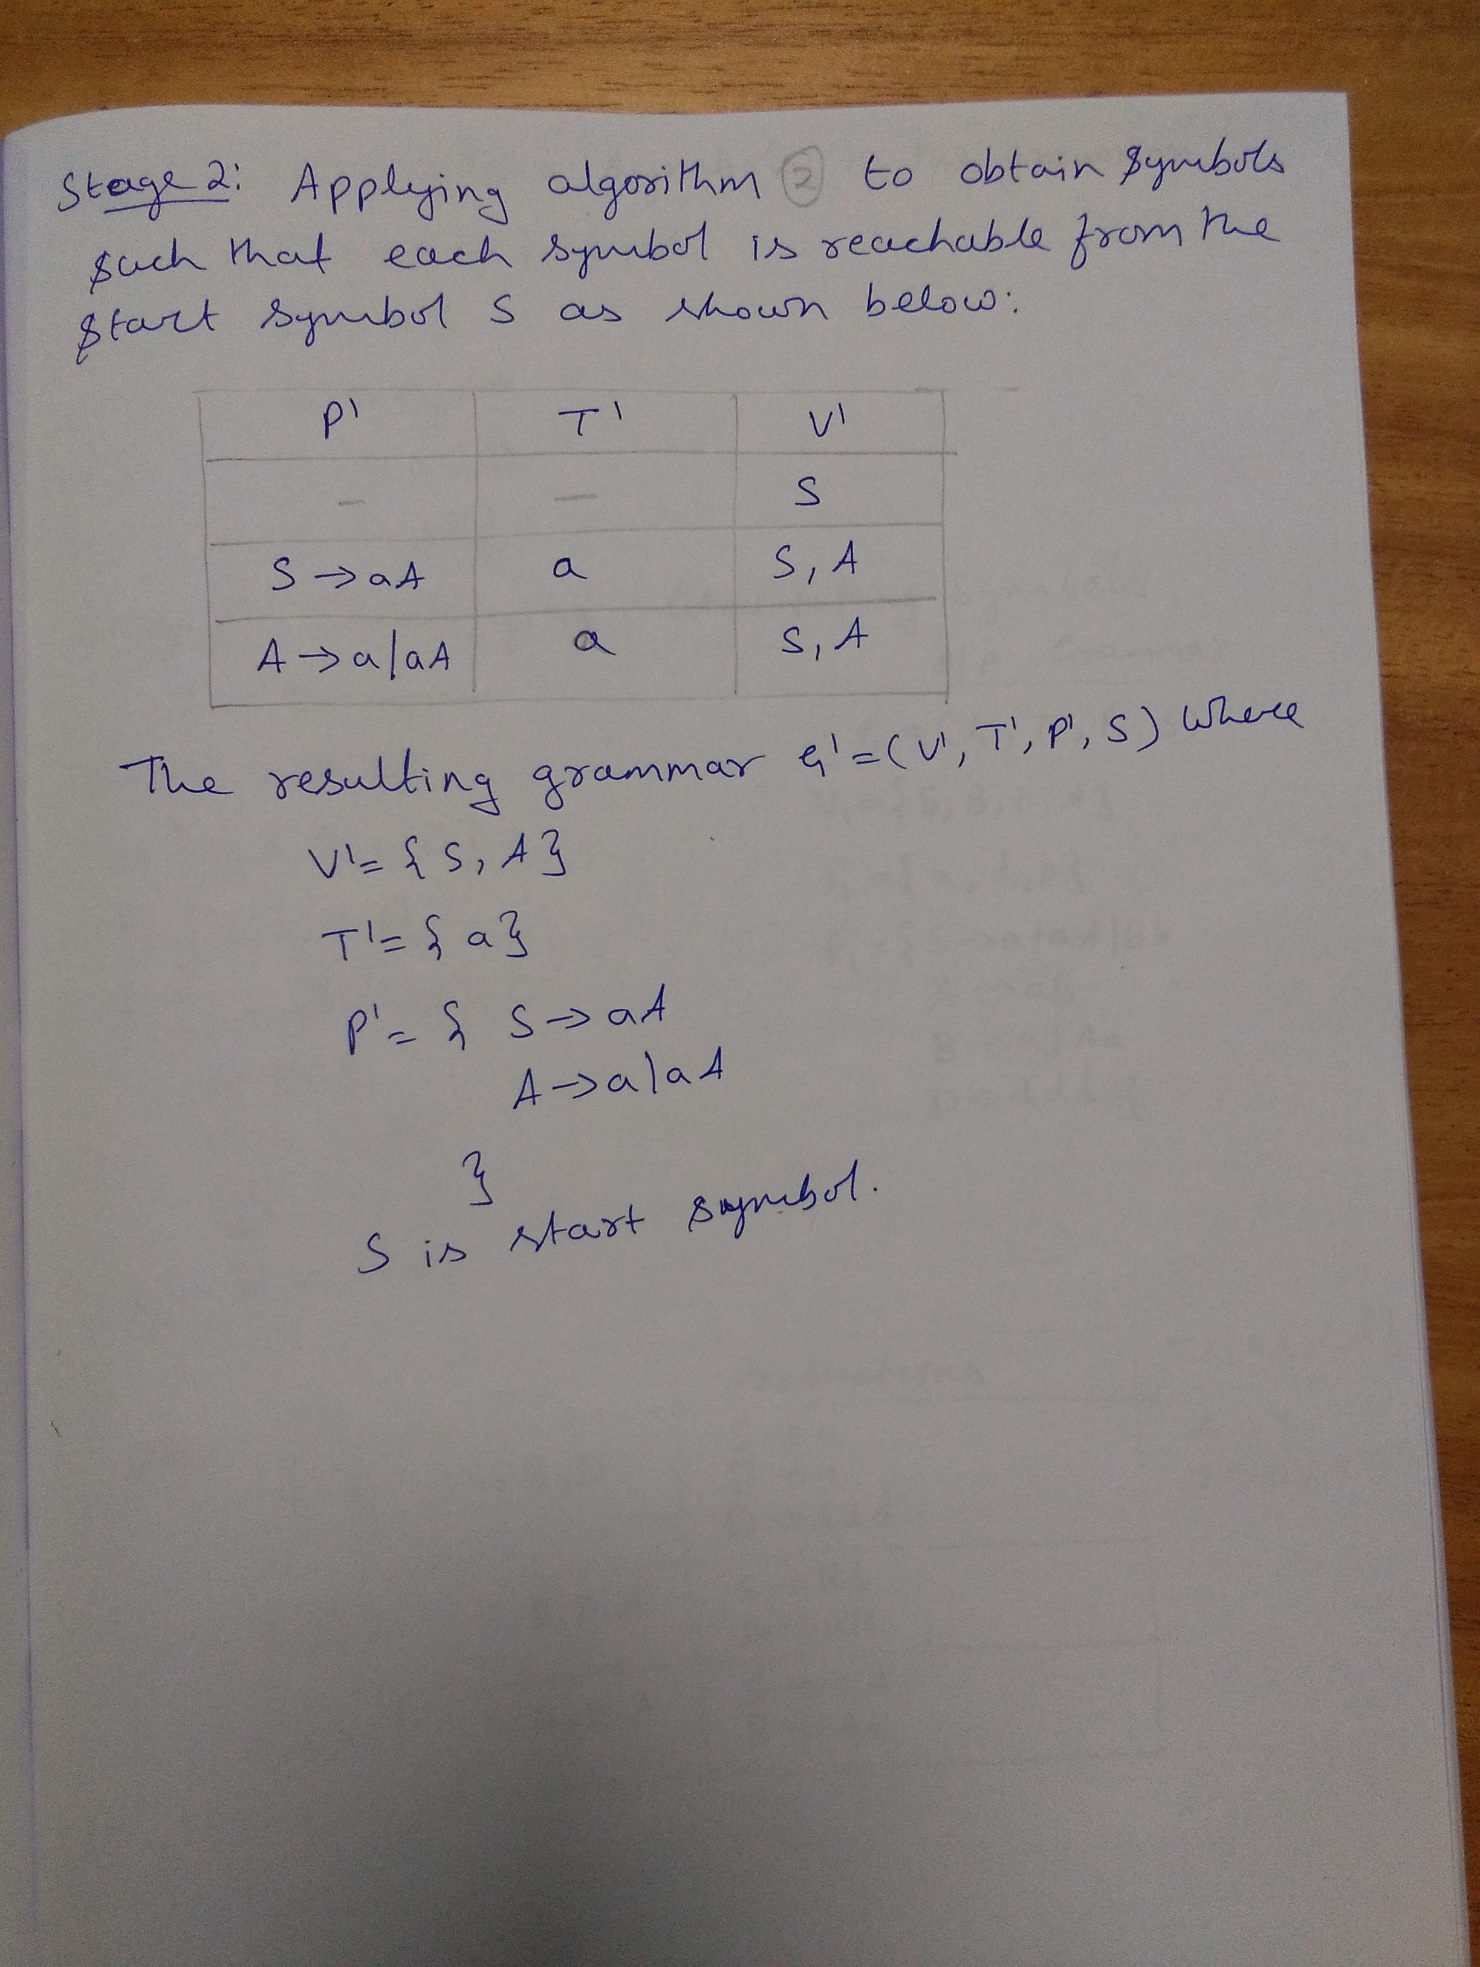 Stage 2: Applying algorithm 2 to obtain symbols
such that each symbol is reachable from the
start symbol S as shown below:
P' T' V'
— — S
S → aA a S, A
A → a|aA a S, A
The resulting grammar G' = (V', T', P', S) where
V' = { S, A }
T' = { a }
P' = { S → aA
A → a|aA
}
S is start symbol.